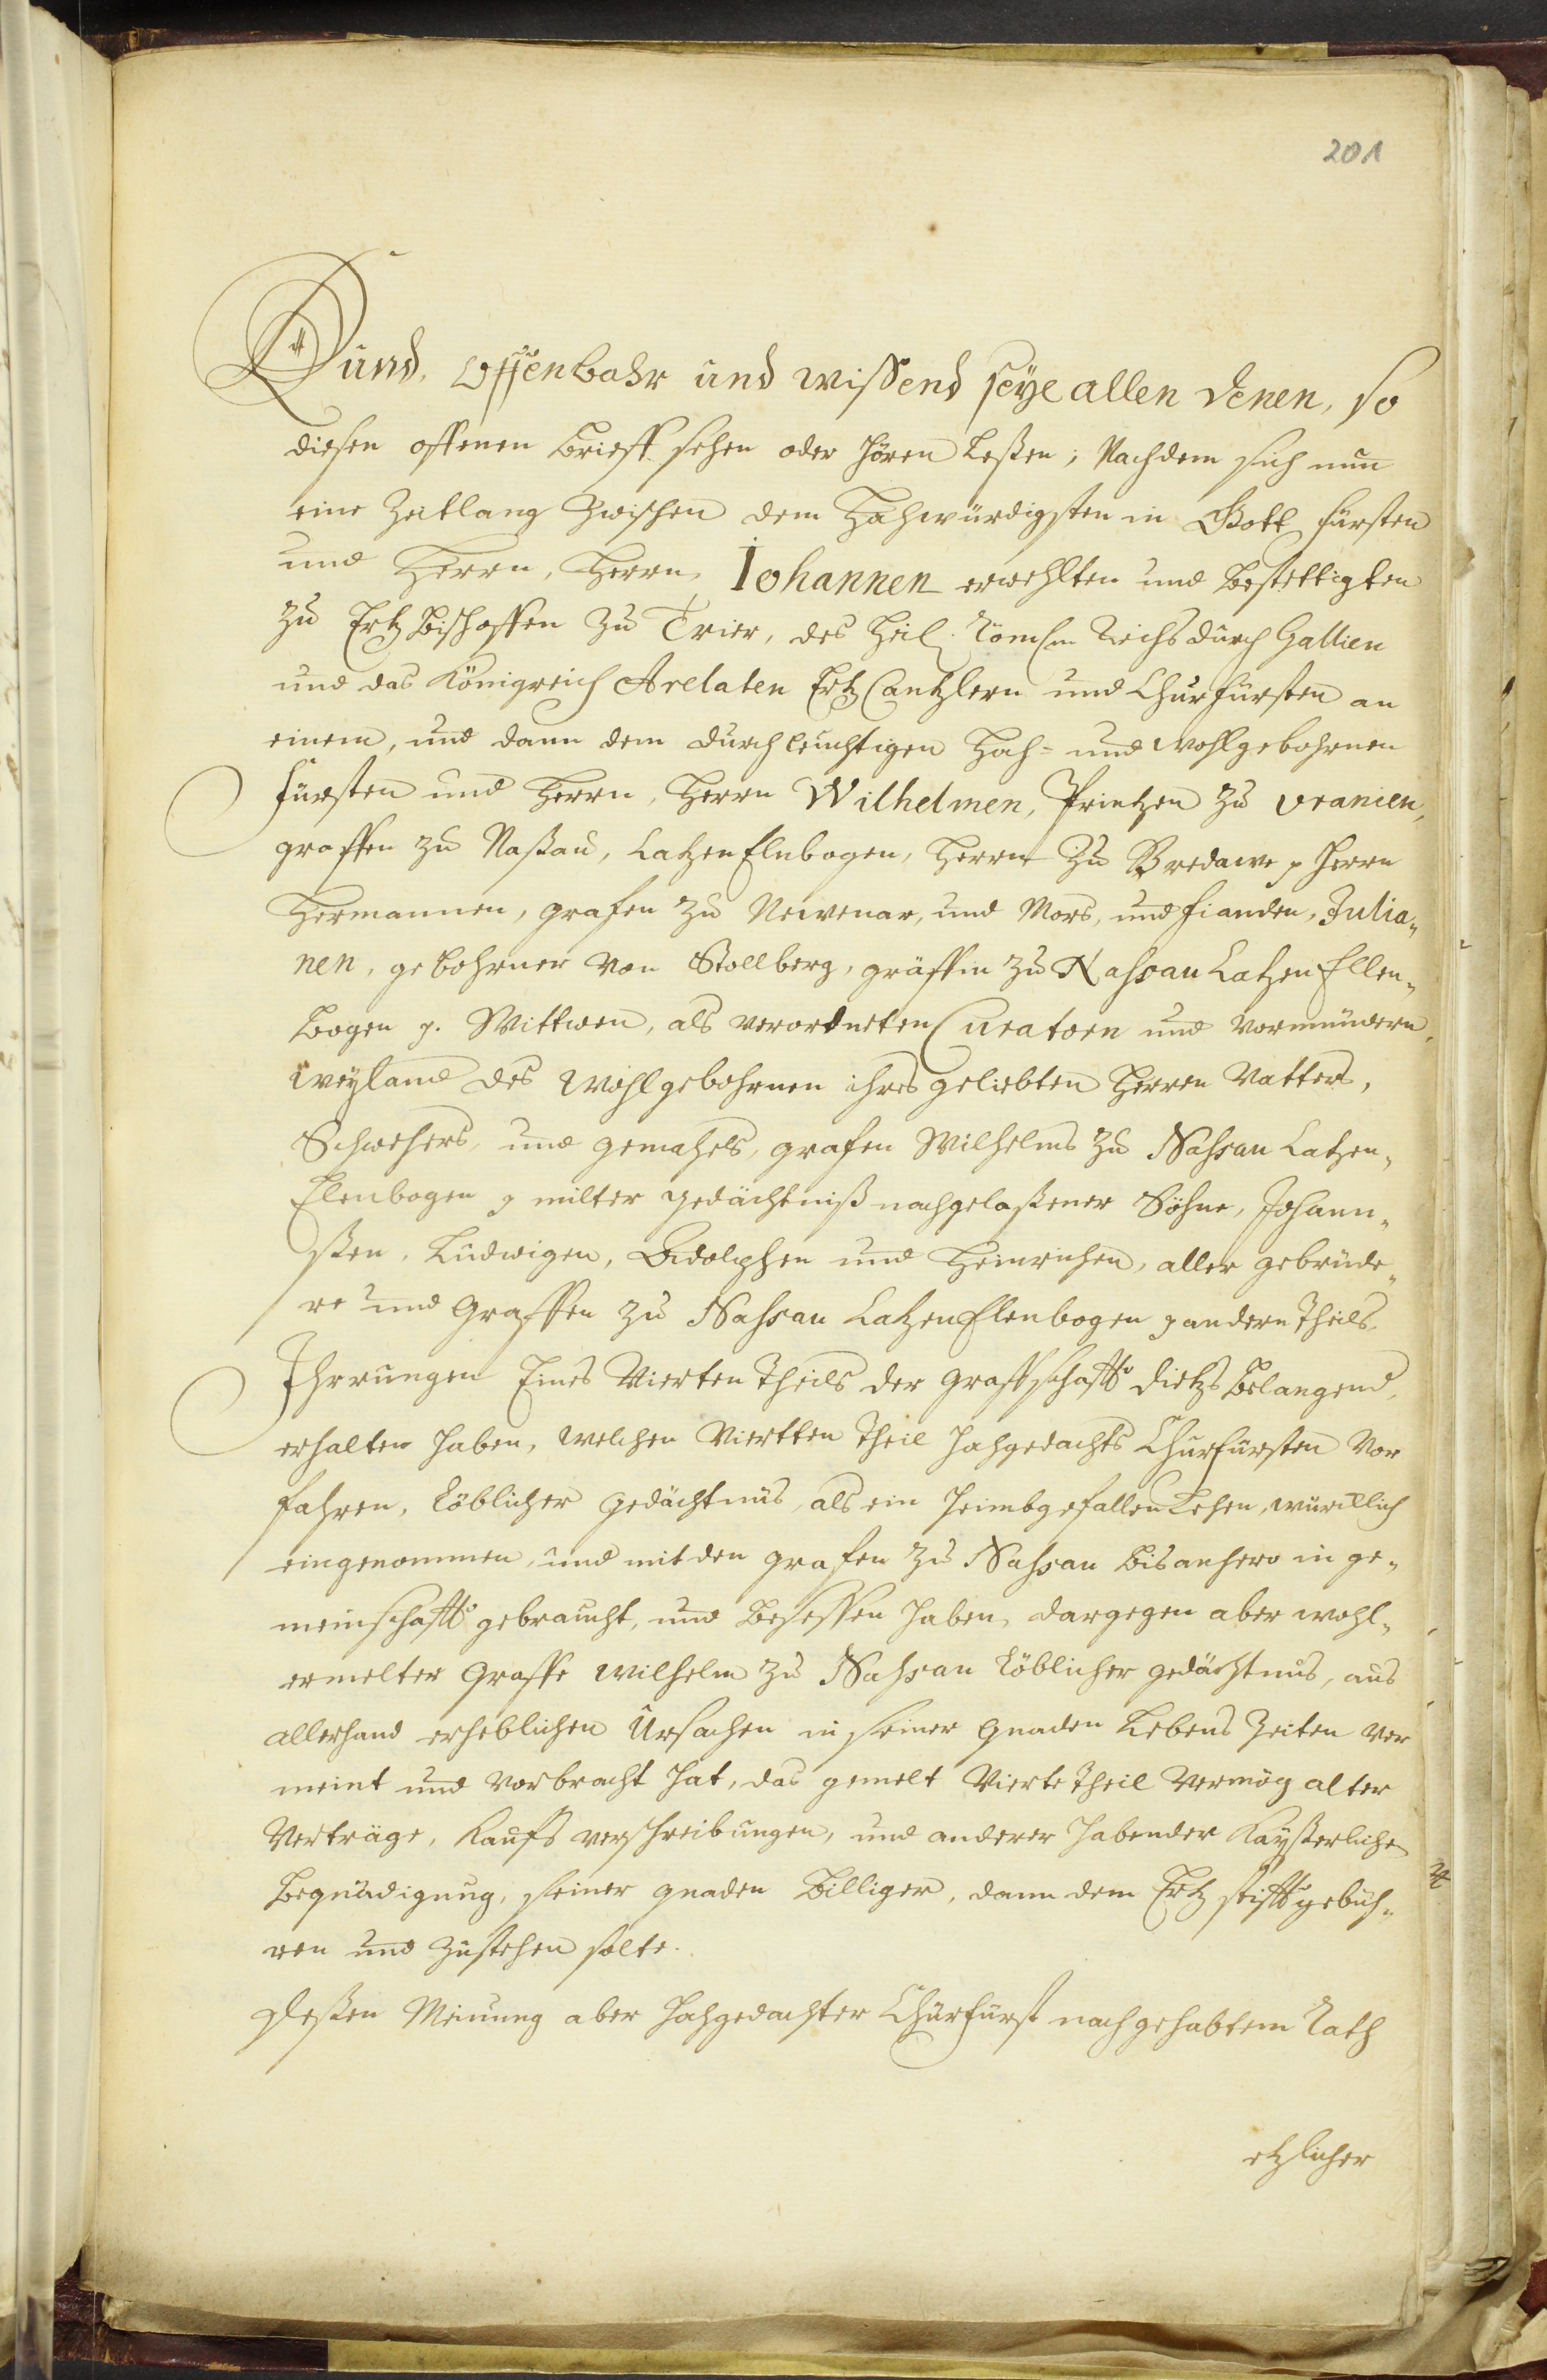 201
Kund, offenbahr und wissend seye allen denen, so
diesen offenen Brieff sehen oder hören leßen; Nachdem sich nun
eine Zeitlang zwischen dem Hochwürdigsten in Gott Fürsten
und Herrn, Herrn Iohannen erwehlten und bestettigten
zu Ertz Bischoffen zu Trier, des Heil. Römschn Reichs durch Gallien
und das Königreich Arelaten Ertz Cantzlern und Churfürsten an
einem, und dann dem durchleuchtigen Hoch- und wohlgebohrnen
Fürsten und Herrn, Herrn Wilhelmen, Printzen zu Vranien,
graffen zu Naßau, Catzen Elnbogen, Herrn zu Bredawe p Herrn
Hermannen, grafen zu Newenar, und Mors, und fianden, Julia-
nen, gebohrner von Stollberg, gräffin zu Nassau Catzen Ellen-
bogen p. Wittwen, als verordneten Curatorn und vormündern,
weyland des wohlgebohrnen ihres geliebten Herren Vatters,
Schwehers, und gemahels, grafen Wilhelms zu Nassau Catzen-
Elenbogen p milter gedächtniß nachgelaßener Söhne, Johann-
ßen, Ludwigen, Adolphen und Heinrichen, aller gebrüde-
re und Graffen zu Nassau Catzen Elenbogen p andern theils
Ihrrungen Eines Vierten theils der graffschafft dietzs belangend,
erhalten haben, welchen Viertten theil hochgedachts Churfürsten Vor
fahren, löblicher gedächtnüs, als ein heimbgefallen Lehen, würcklich
eingenommen, und mit den grafen zu Nassau bis anhero in ge-
meinschafft gebraucht, und besessen haben, dargegen aber wohl-
ermelter Graffe Wilhelm zu Nassau löblicher gedächtnus, aus
allerhand erheblichen Ursachen in seiner gnaden Lebens Zeiten ver
meint und vorbracht hat, das gemelt Vierte theil Vermög alter
Verträge, Kaufs verschreibungen, und anderer habender Kayßerliche
begnadigung, seiner gnaden billiger, dann dem Ertz stifft gebüh-
ren und zustehen solte.
Deßen Meinung aber hochgedachter Churfürst nach gehabtem Rath
etzlicher